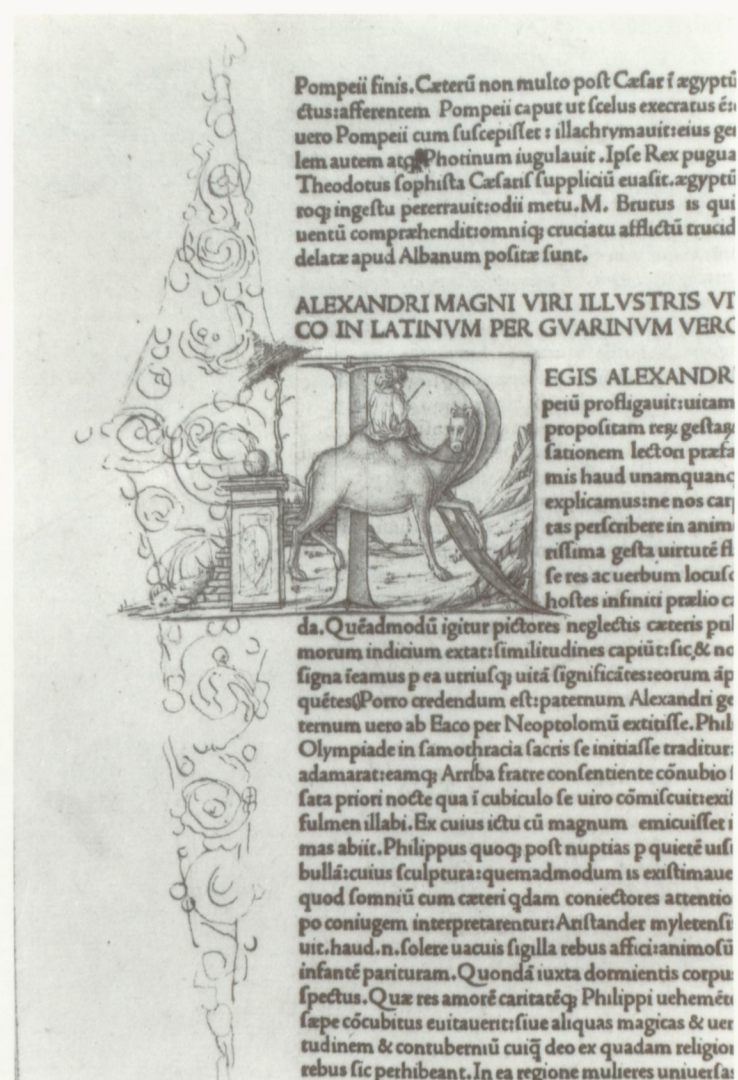 Pompeii finis. Cæterū non multo post Cæsar ī ægyptū
ctus: afferentem Pompeii caput ut scelus execratus é:
uero Pompeii cum suscepisset: illachrymauit: eius ge
lem autem atq Photinum iugulauit. Ipse Rex pugua
Theodotus sophista Cæsaris suppliciū euasit. ægyptū
roq; ingestu pererrauit: odii metu. M. Brutus is qui
uentū compræhendit: omniq; cruciatu afflictū trucid
delatæ apud Albanum positæ sunt.
ALEXANDRI MAGNI VIRI ILLVSTRIS VI
CO IN LATINVM PER GVARINVM VERO
R
EGIS ALEXANDR
peiū profligauit: uitam
propositam reꝝ gestaꝝ
sationem lectori præfa
mis haud unamquanq
explicamus: ne nos car
tas perscribere in anim
rissima gesta uirtutē
se res ac uerbum locusq
hostes infiniti prælio c
da. Quēadmodū igitur pictores neglectis cæteris
morum indicium extat: similitudines capiūt: sic, & no
signa ieamus p ea utriusq; uitā significātes: eorum
quētes Porro credendum est: paternum Alexandri ge
ternum uero ab Eaco per Neoptolomū extitisse. Phil
Olympiade in samothracia sacris se initiasse traditur:
adamarat: eamq; Arriba fratre consentiente cōnubio
sata priori nocte qua ī cubiculo se uiro cōmiscuit: exi
fulmen illabi. Ex cuius ictu cū magnum emicuisset i
mas abiit. Philippus quoq; post nuptias p quietē uisu
bullā: cuius sculptura: quemadmodum is existimaue
quod somniū cum cæteri qdam coniectores attentio
po coniugem interpretarentur: Aristander myletensi
uit. haud. n. solere uacuis sigilla rebus affici: animosū
infantē parituram. Quondā iuxta dormientis corpu
spectus. Quæ res amorē caritatēq; Philippi uehemēt
sæpe cōcubitus euitauerit: siue aliquas magicas & uer
tudinem & contuberniū cuiq̄ deo ex quadam religio
rebus sic perhibeant. In ea regione mulieres uniuersas